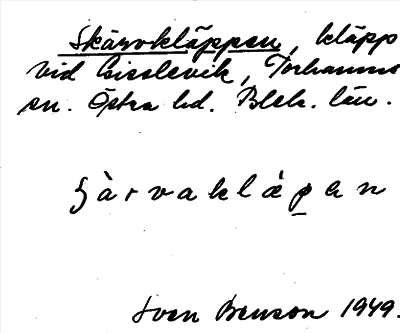 Skärvokläppen, kläpp
vid Gisslevik, Torhamns
sn. Östra hd. Blek. län.
ʂàrvaklápen
Sven Benson 1949.